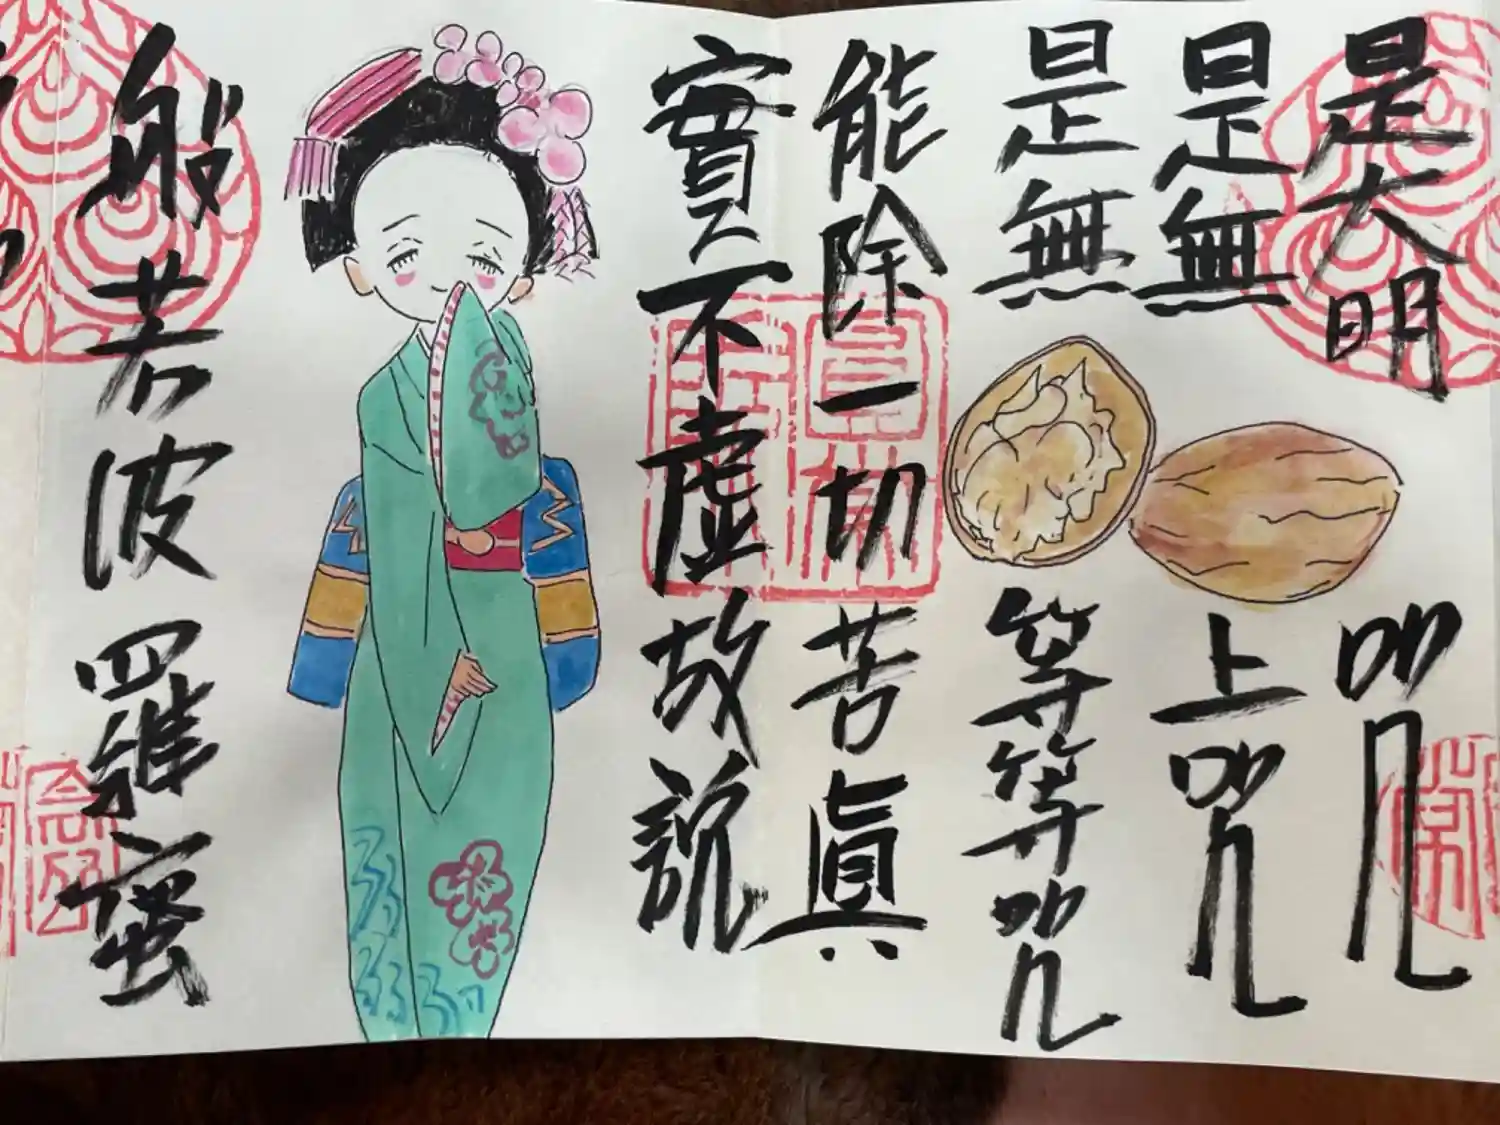 是大明咒
是無上咒
是無等等咒
能除一切苦眞
實不虛故説
般若波羅蜜